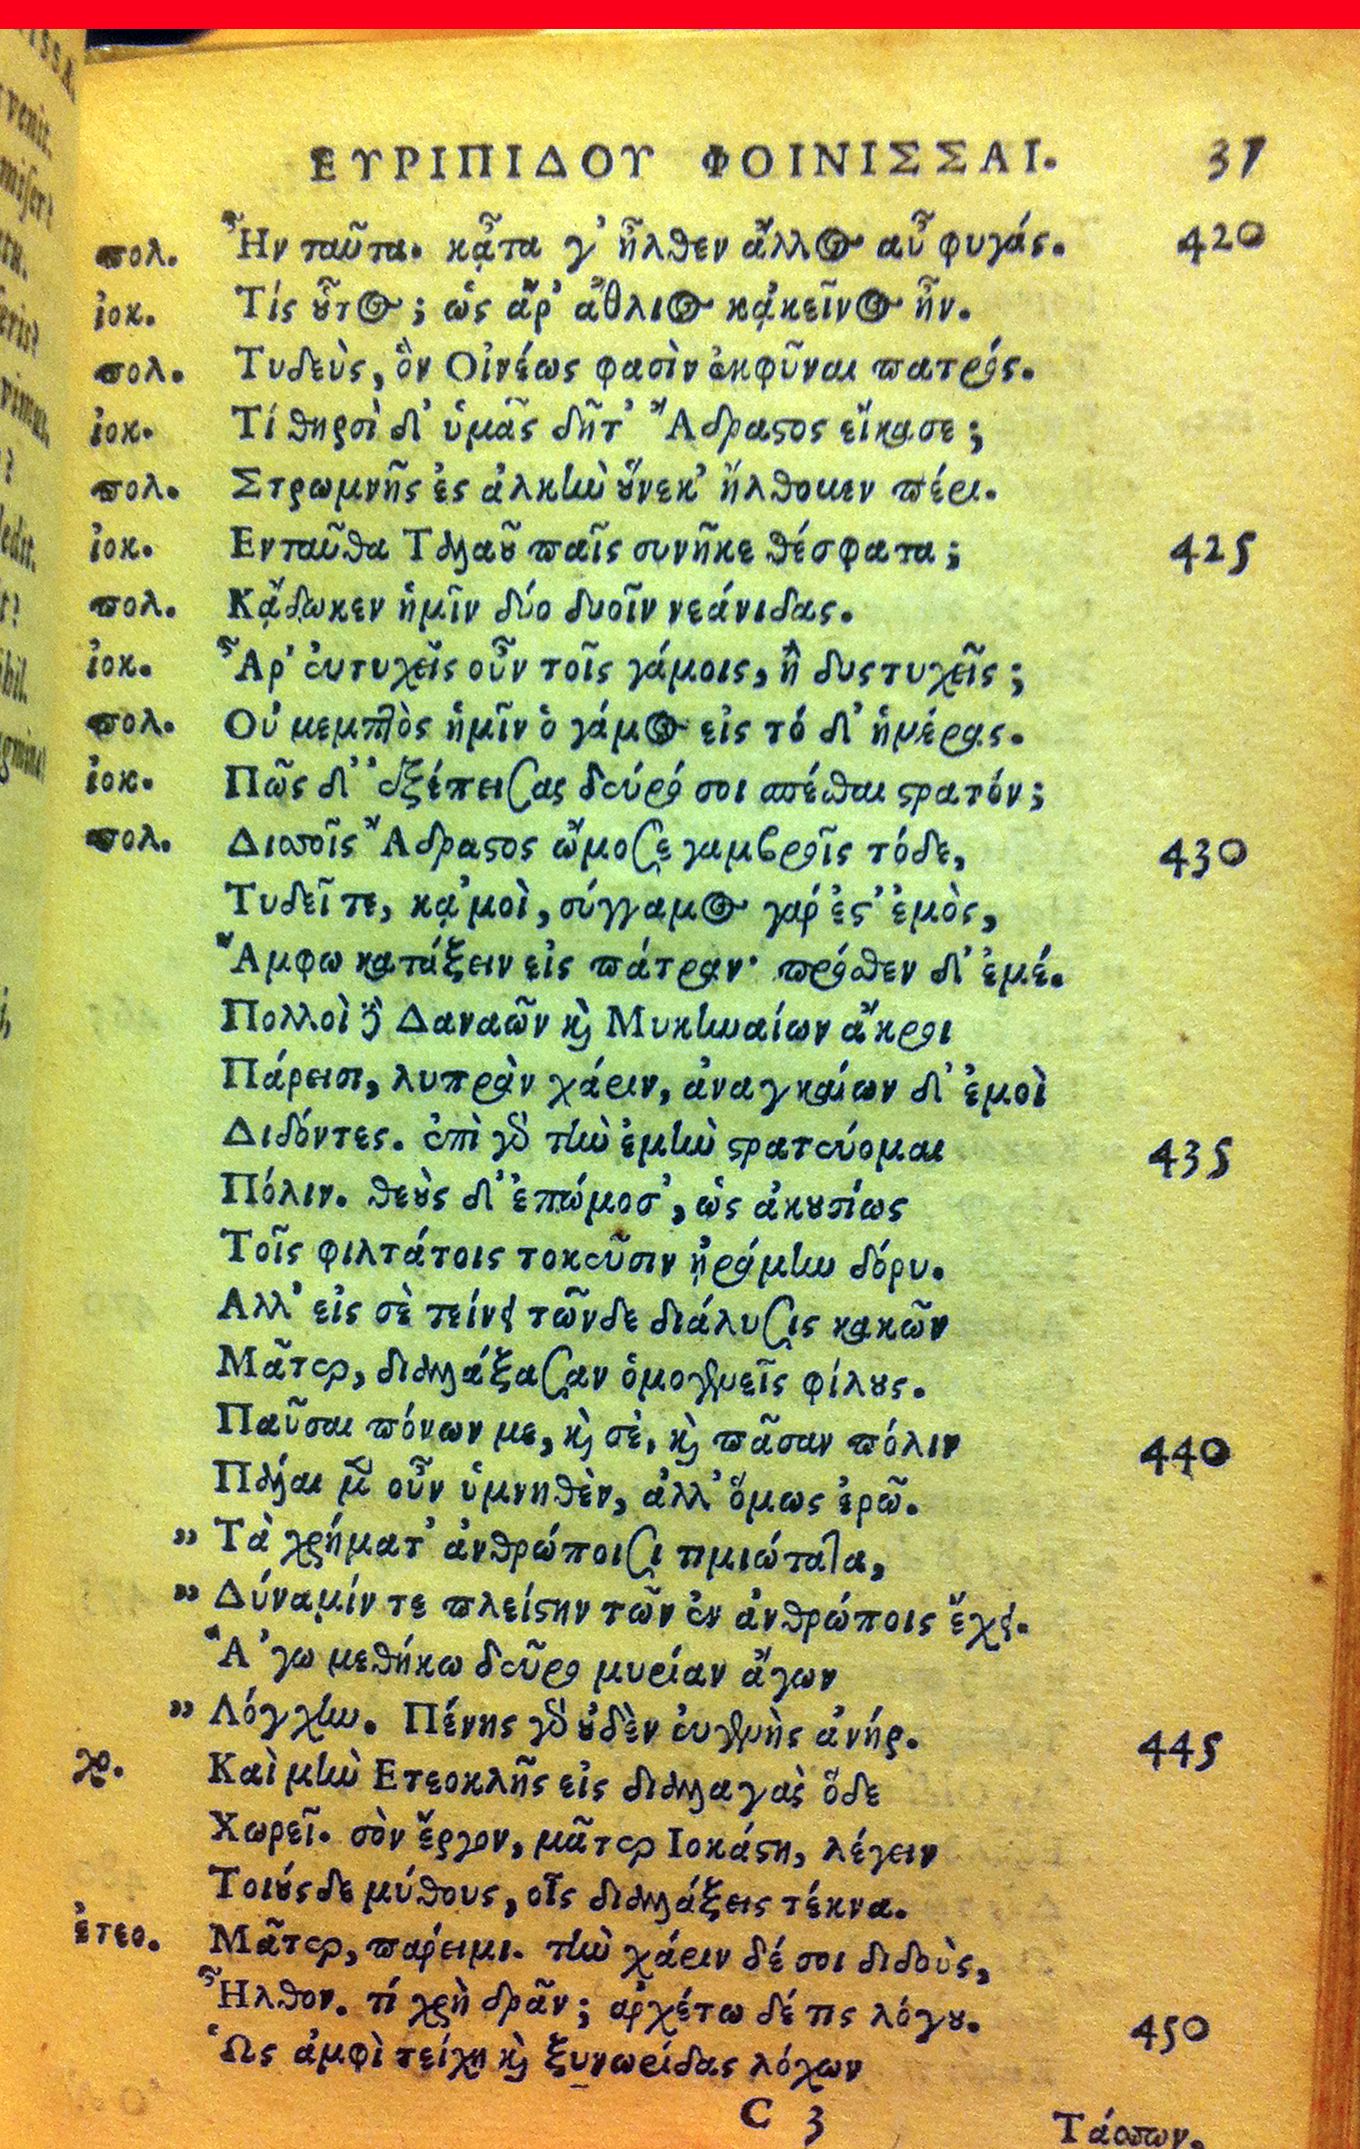 ΕΥΡΙΠΙΔΟΥ ΦΟΙΝΙΣΣΑΙ. 37
πολ. Ἦν ταῦτα. κᾆτα γ' ἦλθεν ἄλλος αὖ φυγάς. 420
ἰοκ. Τίς οὗτος; ὡς ἄρ' ἄθλιος κᾀκεῖνος ἦν.
πολ. Τυδεὺς, ὃν Οἰνέως φασὶν ἐκφῦναι πατρός.
ἰοκ. Τί θηρσὶ δ' ὑμᾶς δῆτ' Ἄδραστος εἴκασε;
πολ. Στρωμνῆς ἐς ἀλκὴν οὕνεκ' ἤλθομεν πέρι.
ἰοκ. Ενταῦθα Ταλαοῦ παῖς συνῆκε θέσφατα; 425
πολ. Κᾄδωκεν ἡμῖν δύο δυοῖν νεάνιδας.
ἰοκ. Ἆρ' εὐτυχεῖς οὖν τοῖς γάμοις, ἢ δυςτυχεῖς;
πολ. Οὐ μεμπτὸς ἡμῖν ὁ γάμος εἰς τό δ' ἡμέρας.
ἰοκ. Πῶς δ' ἐξέπεισας δεύρό σοι σπέσθαι στρατόν;
πολ. Δισσοῖς Ἄδραστος ὤμοσε γαμβροῖς τόδε, 430
Τυδεῖ τε, κᾀμοὶ, σύγγαμος γάρ ἐστ' ἐμὸς,
Ἄμφω κατάξειν εἰς πάτραν· πρόσθεν δ' ἐμέ.
Πολλοὶ δὲ Δαναῶν καὶ Μυκηναίων ἄκροι
Πάρεισι, λυπρὰν χάριν, ἀναγκαίων δ' ἐμοὶ
Διδόντες. ἐπὶ γὰρ τὴν ἐμὴν στρατεύομαι 435
Πόλιν. θεοὺς δ' ἐπώμοσ', ὡς ἀκουσίως
Τοῖς φιλτάτοις τοκεῦσιν ᾐράμην δόρυ.
Αλλ' εἰς σὲ τείνει τῶνδε διάλυσις κακῶν
Μᾶτερ, διαλλάξασαν ὁμογενεῖς φίλους.
Παῦσαι πόνων με, καὶ σὲ, καὶ πᾶσαν πόλιν 440
Πάλαι μὲν οὖν ὑμνηθὲν, ἀλλ' ὅμως ἐρῶ.
» Τὰ χρήματ' ἀνθρώποισι τιμιώτατα,
» Δύναμίν τε πλείστην τῶν ἐν ἀνθρώποις ἔχει.
Ἃ 'γω μεθήκω δεῦρο μυρίαν ἄγων
» Λόγχην. Πένης γὰρ οὐδὲν εὐγενὴς ἀνήρ. 445
χο. Καὶ μὴν Ετεοκλῆς εἰς διαλλαγὰς ὅδε
Χωρεῖ. σὸν ἔργον, μᾶτερ Ιοκάστη, λέγειν
Τοιούςδε μύθους, οἷς διαλλάξεις τέκνα.
ἐτεο. Μᾶτερ, πάρειμι. τὴν χάριν δέ σοι διδοὺς,
Ἦλθον. τί χρὴ δρᾶν; ἀρχέτω δέ τις λόγου. 450
Ὡς ἀμφὶ τείχη καὶ ξυνωρίδας λόχων
C 3 Τάσσων,